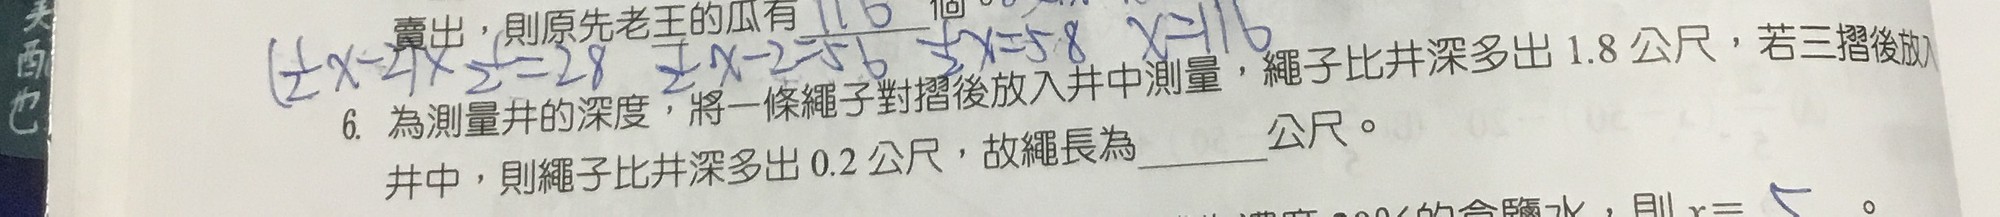 賣出，則原先老王的瓜有 116 個
(½x-2)×½=28 ½x-2=56 ½x=58 x=116
6. 為測量井的深度，將一條繩子對摺後放入井中測量，繩子比井深多出 1.8 公尺，若三摺後放入
井中，則繩子比井深多出 0.2 公尺，故繩長為______公尺。
20%的食鹽水，則 x= 5 。